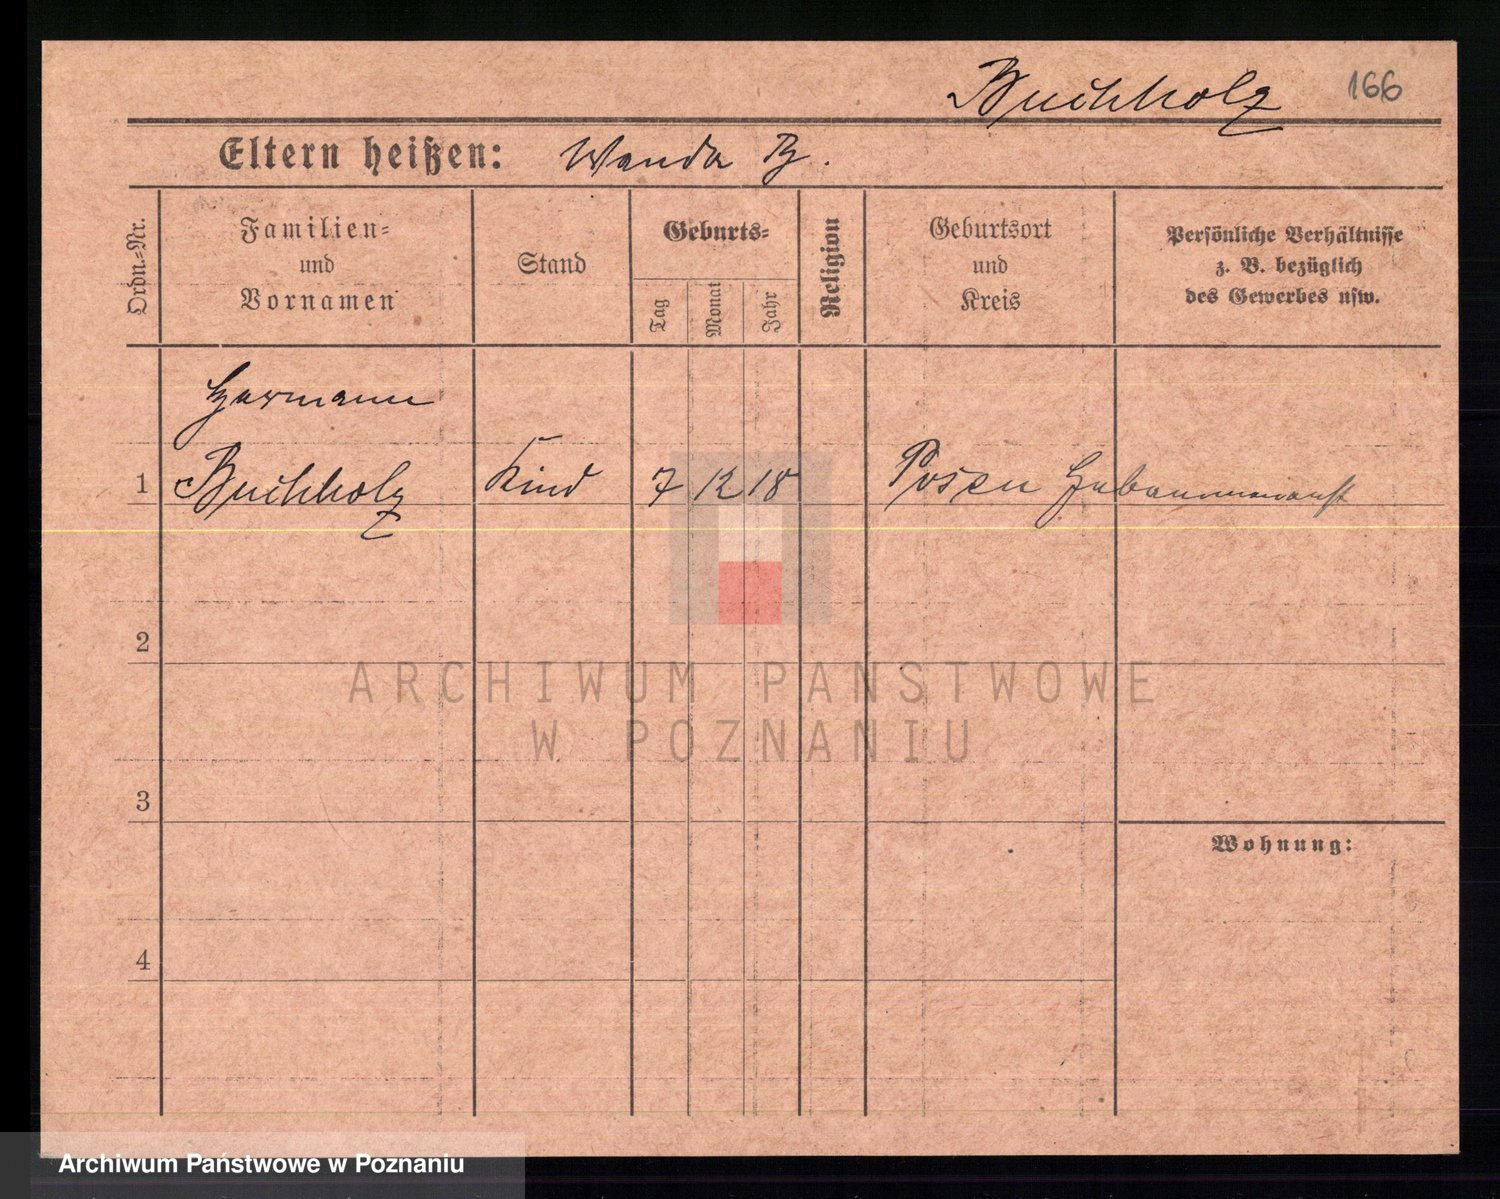 Buchholz 166
Eltern heißen: Wanda B.
Ordn.-Nr.
Familien-
und
Vornamen
Stand
Geburts-
Tag
Monat
Jahr
Religion
Geburtsort
und
Kreis
Persönliche Verhältnisse
z. B. bezüglich
des Gewerbes usw.
Hermann
1 Buchholz Kind 7 12 18 Posen Hebammenanst
2
ARCHIWUM PAŃSTWOWE
W POZNANIU
3
Wohnung:
4
Archiwum Państwowe w Poznaniu